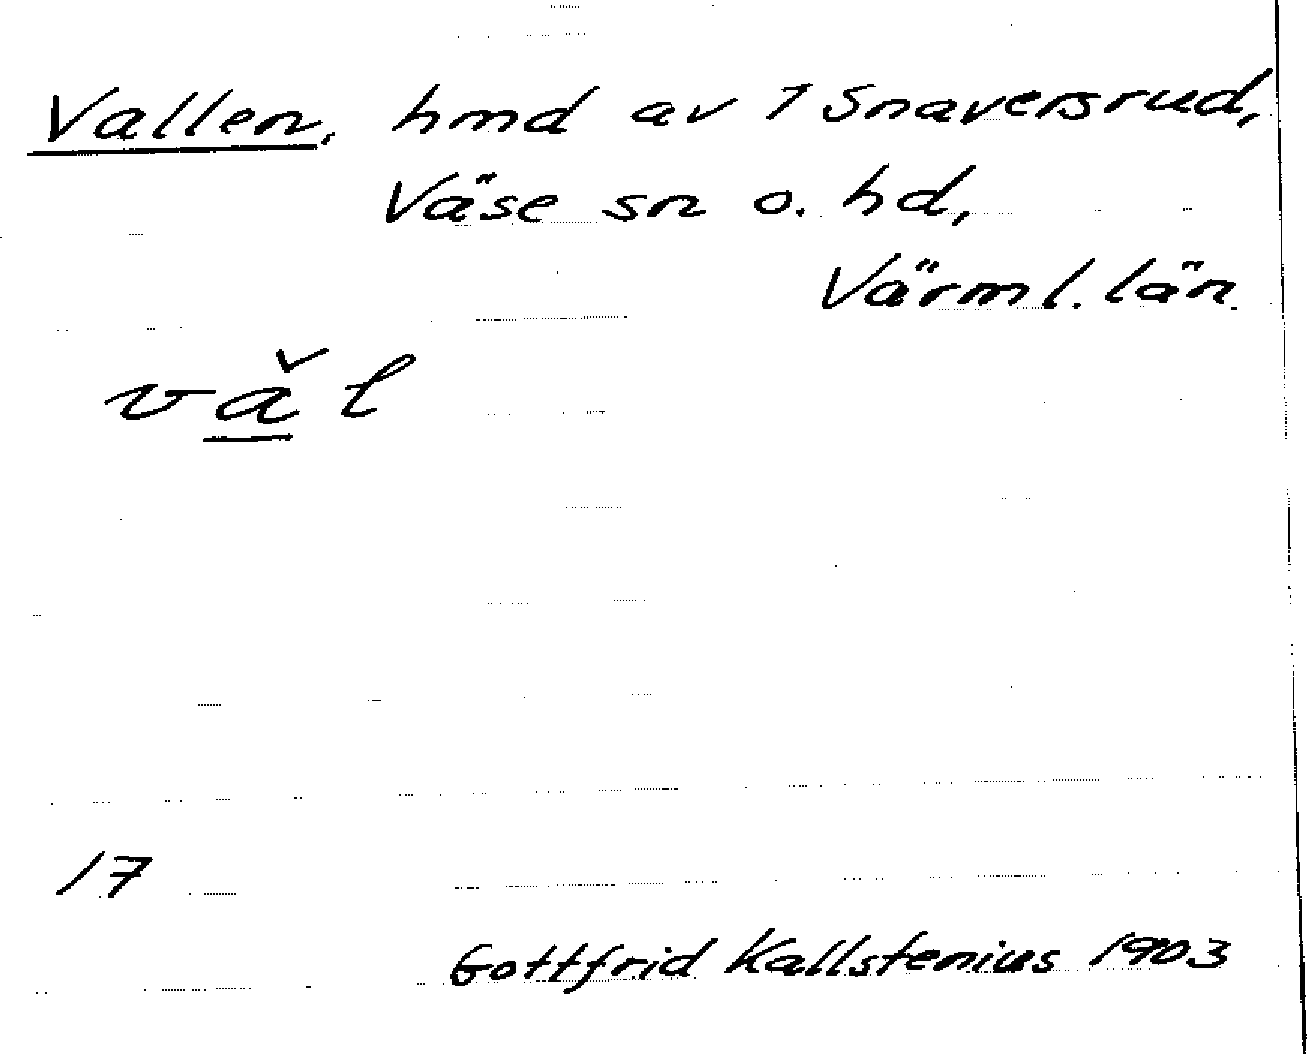 Vallen, hmd av 1 Snaversrud,
Väse sn o. hd,
Värml. län
vǎl
17
Gottfrid Kallstenius 1903